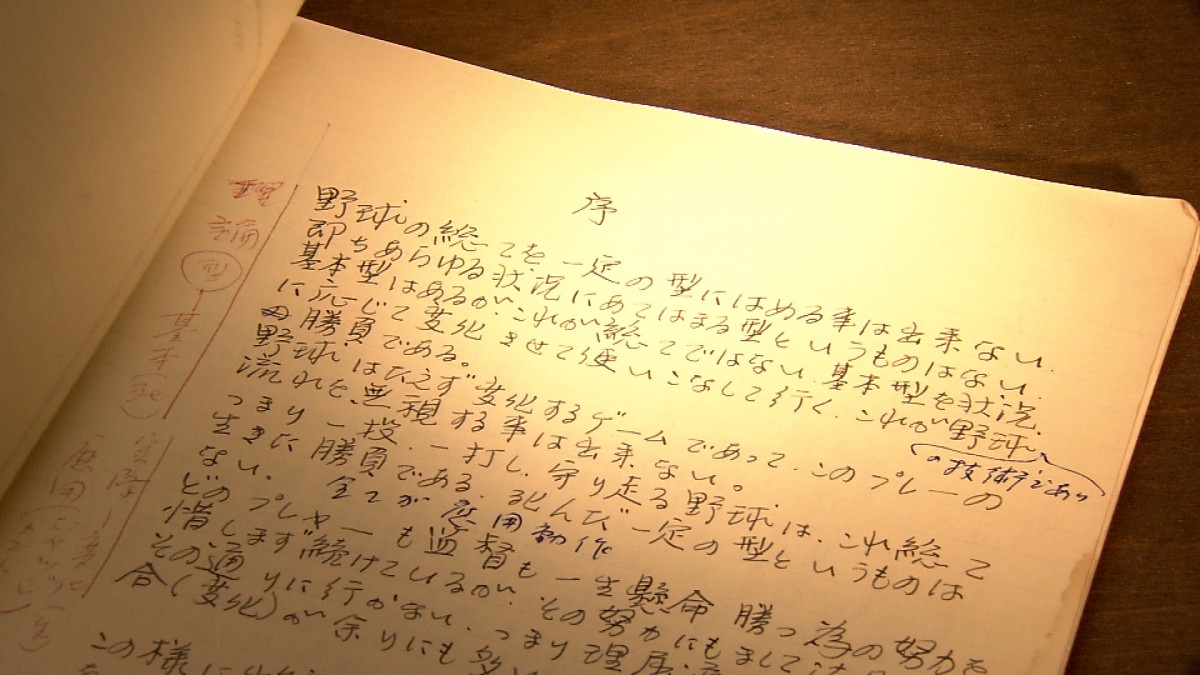 序
野球の総てを一定の型にはめる事は出来ない.
即ちあらゆる状況にあてはまる型というものはない.
基本型はあるが、これが総てではない. 基本型を状況.
に応じて変化させて使いこなして行く. これが野球
の技術であり
の勝負である。
野球はたえず変化するゲームであって、このプレーの
流れを無視する事は出来ない。
つまり一投、一打し、守り走る野球は、これ総て
生きた勝負である. 死んだ一定の型というものは
ない. 全てが応用動作
どのプレヤーも監督も一生懸命勝つ為の努力を
惜しまず続けているが、その努力にもまして
その通りに行かない. つまり理屈
合(変化)が余りにも多い
この様に
理論
型
基本
実際
応用